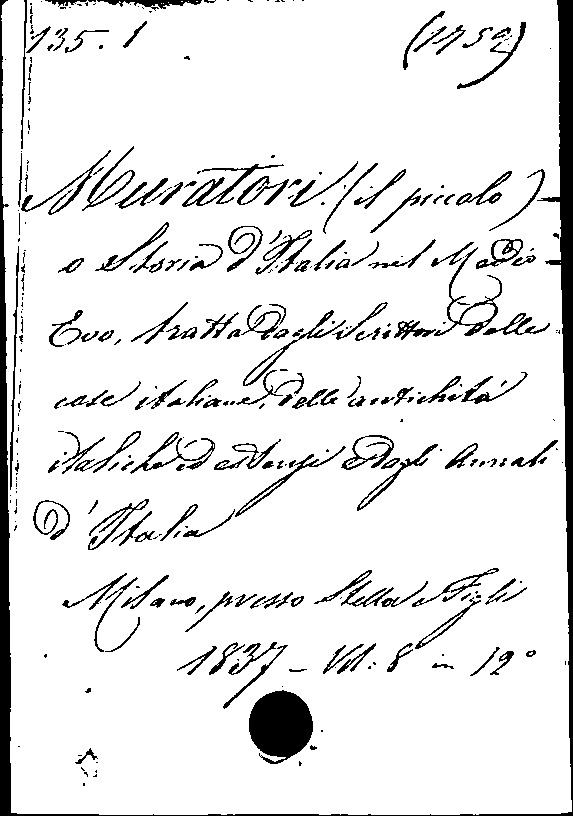 135. 1 (1752)
Muratori. (il piccolo)
o Storia d'Italia nel Medio
Evo, tratta dagli Scrittori delle
cose italiane, delle antichità
italiche ed estensi e dagli Annali
d'Italia
Milano, presso Stella e Figli
1837 – Vol: 8 in 12°